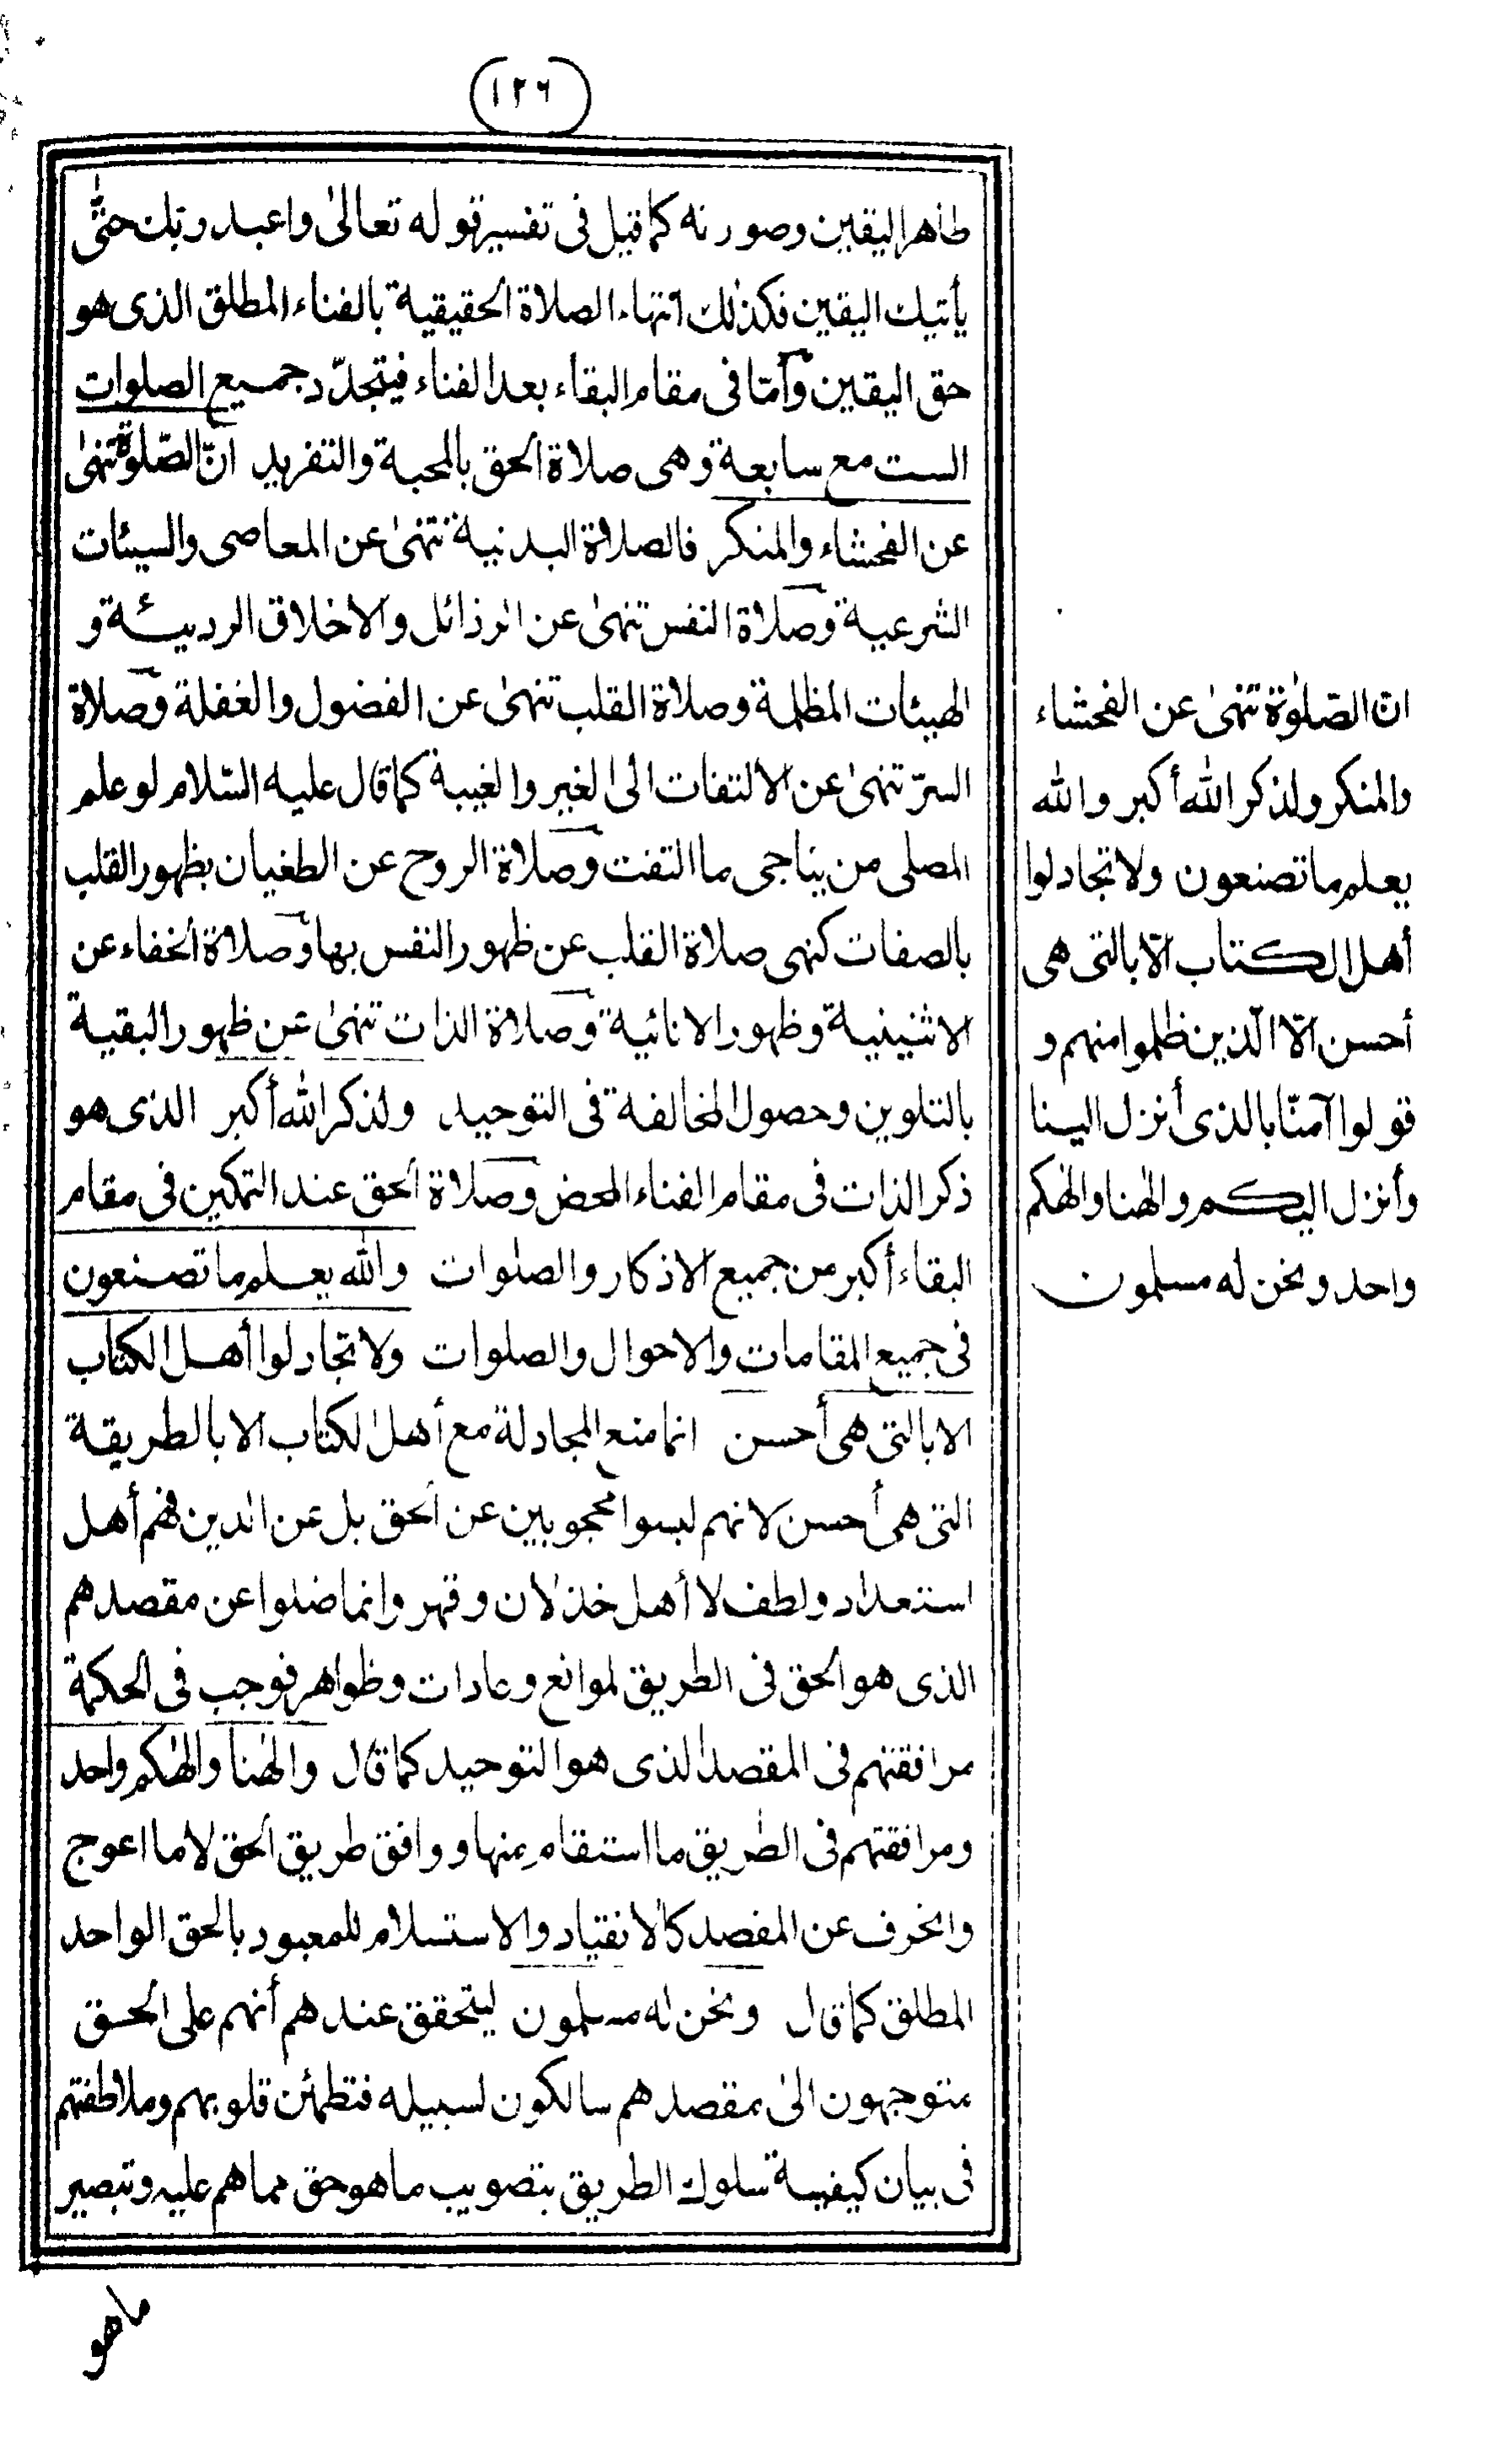 (١٢٦)
ظاهر اليقين وصورته كما قيل فى تفسير قوله تعالىٰ واعبد ربك حتّٰى
يأتيك اليقين فكذلك انتهاء الصلاة الحقيقية بالفناء المطلق الذى هو
حق اليقين وأمّا فى مقام البقاء بعد الفناء فيتجدّد جميع الصلوات
الست مع سابعة وهى صلاة الحق بالمحبة والتفريد انّ الصّلوة تنهىٰ
عن الفحشاء والمنكر فالصلاة البدنية تنهىٰ عن المعاصى والسيئات
الشرعية وصلاة النفس تنهىٰ عن الرذائل والاخلاق الرديئة و
الهيئات المظلمة وصلاة القلب تنهىٰ عن الفضول والغفلة وصلاة
السرّ تنهىٰ عن الالتفات الى الغير والغيبة كما قال عليه السّلام لو علم
المصلى من يناجى ما التفت وصلاة الروح عن الطغيان بظهور القلب
بالصفات كنهى صلاة القلب عن ظهور النفس بها وصلاة الخفاء عن
الاثنينية وظهور الانائية وصلاة الذات تنهىٰ عن ظهور البقية
بالتلوين وحصول المخالفة فى التوحيد ولذكر الله أكبر الذى هو
ذكر الذات فى مقام الفناء المحض وصلاة الحق عند التمكين فى مقام
البقاء أكبر من جميع الاذكار والصلوات والله يعلم ما تصنعون
فى جميع المقامات والاحوال والصلوات ولا تجادلوا أهل الكتاب
الا بالتى هى أحسن انما منع المجادلة مع أهل الكتاب الا بالطريقة
التى هى أحسن لانهم ليسوا محجوبين عن الحق بل عن الدين فهم أهل
استعداد ولطف لا أهل خذلان وقهر وانما ضلوا عن مقصدهم
الذى هو الحق فى الطريق لموانع وعادات وظواهر فوجب فى الحكمة
مرافقتهم فى المقصد الذى هو التوحيد كما قال والٰهنا والٰهكم واحد
ومرافقتهم فى الطريق ما استقام منها ووافق طريق الحق لا ما اعوج
وانحرف عن المقصد كالانقياد والاستسلام للمعبود بالحق الواحد
المطلق كما قال ونحن له مسلمون ليتحقق عندهم أنهم على الحق
متوجهون الىٰ مقصدهم سالكون لسبيله فتطمئن قلوبهم وملاطفتهم
فى بيان كيفية سلوك الطريق بتصويب ما هو حق مما هم عليه وتبصير
ماهو
انّ الصّلوٰة تنهىٰ عن الفحشاء
والمنكر ولذكر الله أكبر والله
يعلم ما تصنعون ولا تجادلوا
أهل الكتاب الّا بالتى هى
أحسن الّا الّذين ظلموا منهم و
قولوا آمنّا بالذى أنزل الينا
وأنزل اليكم والٰهنا والٰهكم
واحد ونحن له مسلمون